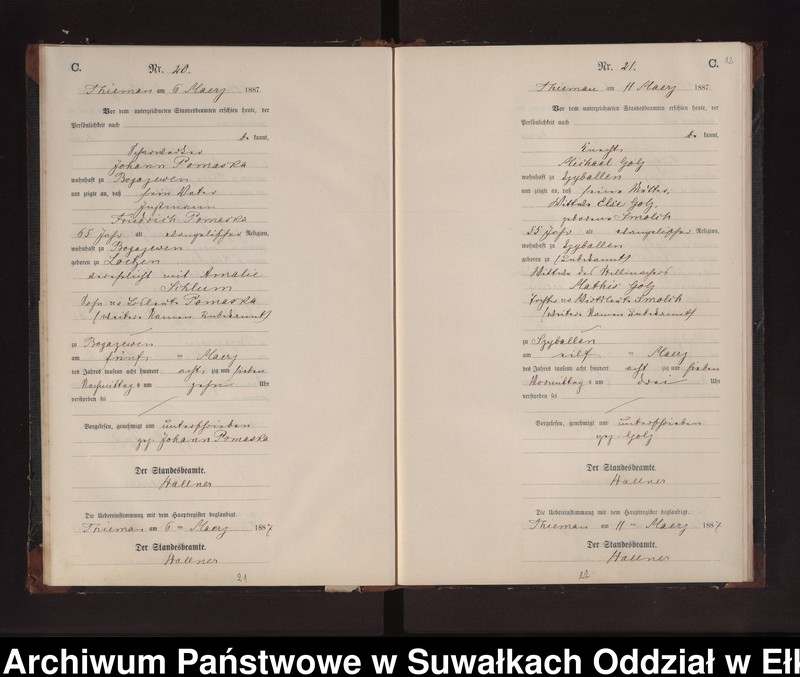 C.
Nr. 20.
Thiemau am 6 Maerz 1887.
Vor dem unterzeichneten Standesbeamten erschien heute, der
Persönlichkeit nach
be kannt,
Johann Pomaska
wohnhaft zu Bogazewen
und zeigte an, daß sein Vater
Friedrich Pomaska
65 Jahr alt evangelischer Religion,
wohnhaft zu Bogazewen
geboren zu Loetzen
verehelicht mit Amalie
Schlum
Sohn der Pomaska
(weitere Namen unbekannt)
zu Bogazewen
am fünf - Maerz
des Jahres tausend acht hundert acht zig und sieben
Nachmittag s um zehn Uhr
verstorben sei
Vorgelesen, genehmigt und unterschrieben
gez. Johann Pomaska
Der Standesbeamte.
Hallner
Die Uebereinstimmung mit dem Hauptregister beglaubigt.
Thiemau am 6 ten Maerz 1887
Der Standesbeamte.
Hallner
21
C.
Nr. 21.
Thiemau am 11 Maerz 1887.
Vor dem unterzeichneten Standesbeamten erschien heute, der
Persönlichkeit nach
be kannt,
Knecht
Michael Golz
wohnhaft zu Szyballen
und zeigte an, daß seine Mutter,
Wittwe Else Golz,
geborene Smolih
55 Jahr alt evangelischer Religion,
wohnhaft zu Szyballen
geboren zu (Unbekannt)
Wittwe des
Mathis Golz
Tochter der Smolih
(weitere Namen unbekannt)
zu Szyballen
am eilf - Maerz
des Jahres tausend acht hundert acht zig und sieben
Vormittag s um drei Uhr
verstorben sei
Vorgelesen, genehmigt und unterschrieben
gez. Golz
Der Standesbeamte.
Hallner
Die Uebereinstimmung mit dem Hauptregister beglaubigt.
Thiemau am 11 ten Maerz 1887
Der Standesbeamte.
Hallner
Archiwum Państwowe w Suwałkach Oddział w Ełk